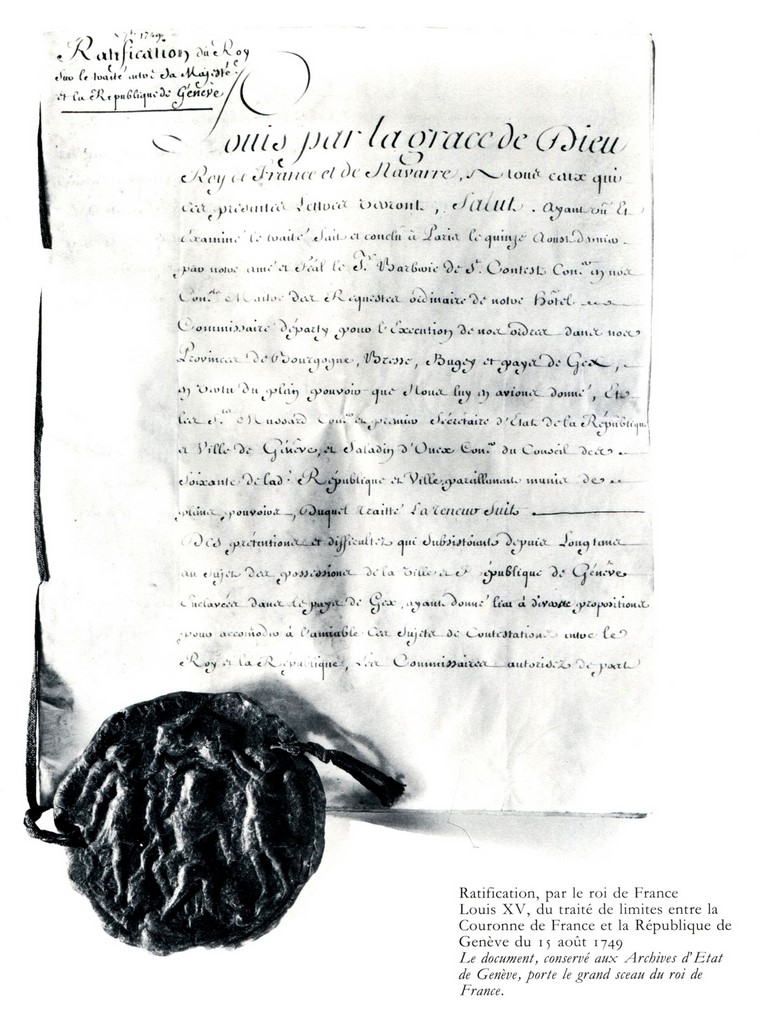 7bre 1749.
Ratification du Roy
Sur le traité entre Sa Majesté
et la République de Genève
Louis par la grace de Dieu
Roy de France et de Navarre, A tous ceux qui
ces presentes Lettres verront, Salut. Ayant vû Et
Examiné le traité fait et conclu à Paris le quinze Aoust dernier
par notre amé et féal le Sr. Barberie de St. Contest Conr. en nos
Conls. Maitre des Requestes ordinaire de notre hôtel
Commissaire départy pour l'Execution de nos ordres dans nos
Provinces de Bourgogne, Bresse, Bugey et payis de Gex,
en vertu du plein pouvoir que Nous luy en avions donné, Et
les Srs. Mussard Conr. et premier Secrétaire d'Etat de la République
et Ville de Genève, et Saladin d'Onex Conr. du Conseil des
Soixante de lad. République et Ville, pareillement munis de
pleins pouvoirs, Duquel traitté La teneur Suit
Des prétentions et difficultez qui Subsistoient depuis Longtems
au Sujet des possessions de la Ville et République de Genève
Enclavées dans le payis de Gex, ayant donné lieu à diverses propositions
pour accomoder à l'amiable Ces Sujets de Contestations entre le
Roy et la République, Les Commissaires autorisez de part
Ratification, par le roi de France
Louis XV, du traité de limites entre la
Couronne de France et la République de
Genève du 15 août 1749
Le document, conservé aux Archives d'Etat
de Genève, porte le grand sceau du roi de
France.